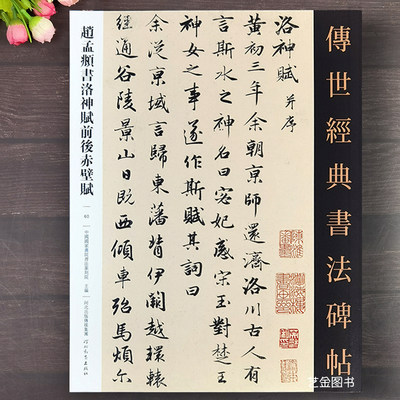 傳世經典書法碑帖
洛神賦 并序
黃初三年余朝京師還濟洛川古人有
言斯水之神名曰宓妃感宋玉對楚王
神女之事遂作斯賦其詞曰
余從京域言歸東藩背伊闕越轘轅
經通谷陵景山日既西傾車殆馬煩尔
趙孟頫書洛神賦前後赤壁賦
主編
河北出版傳媒集團
河北教育出版社
艺金图书